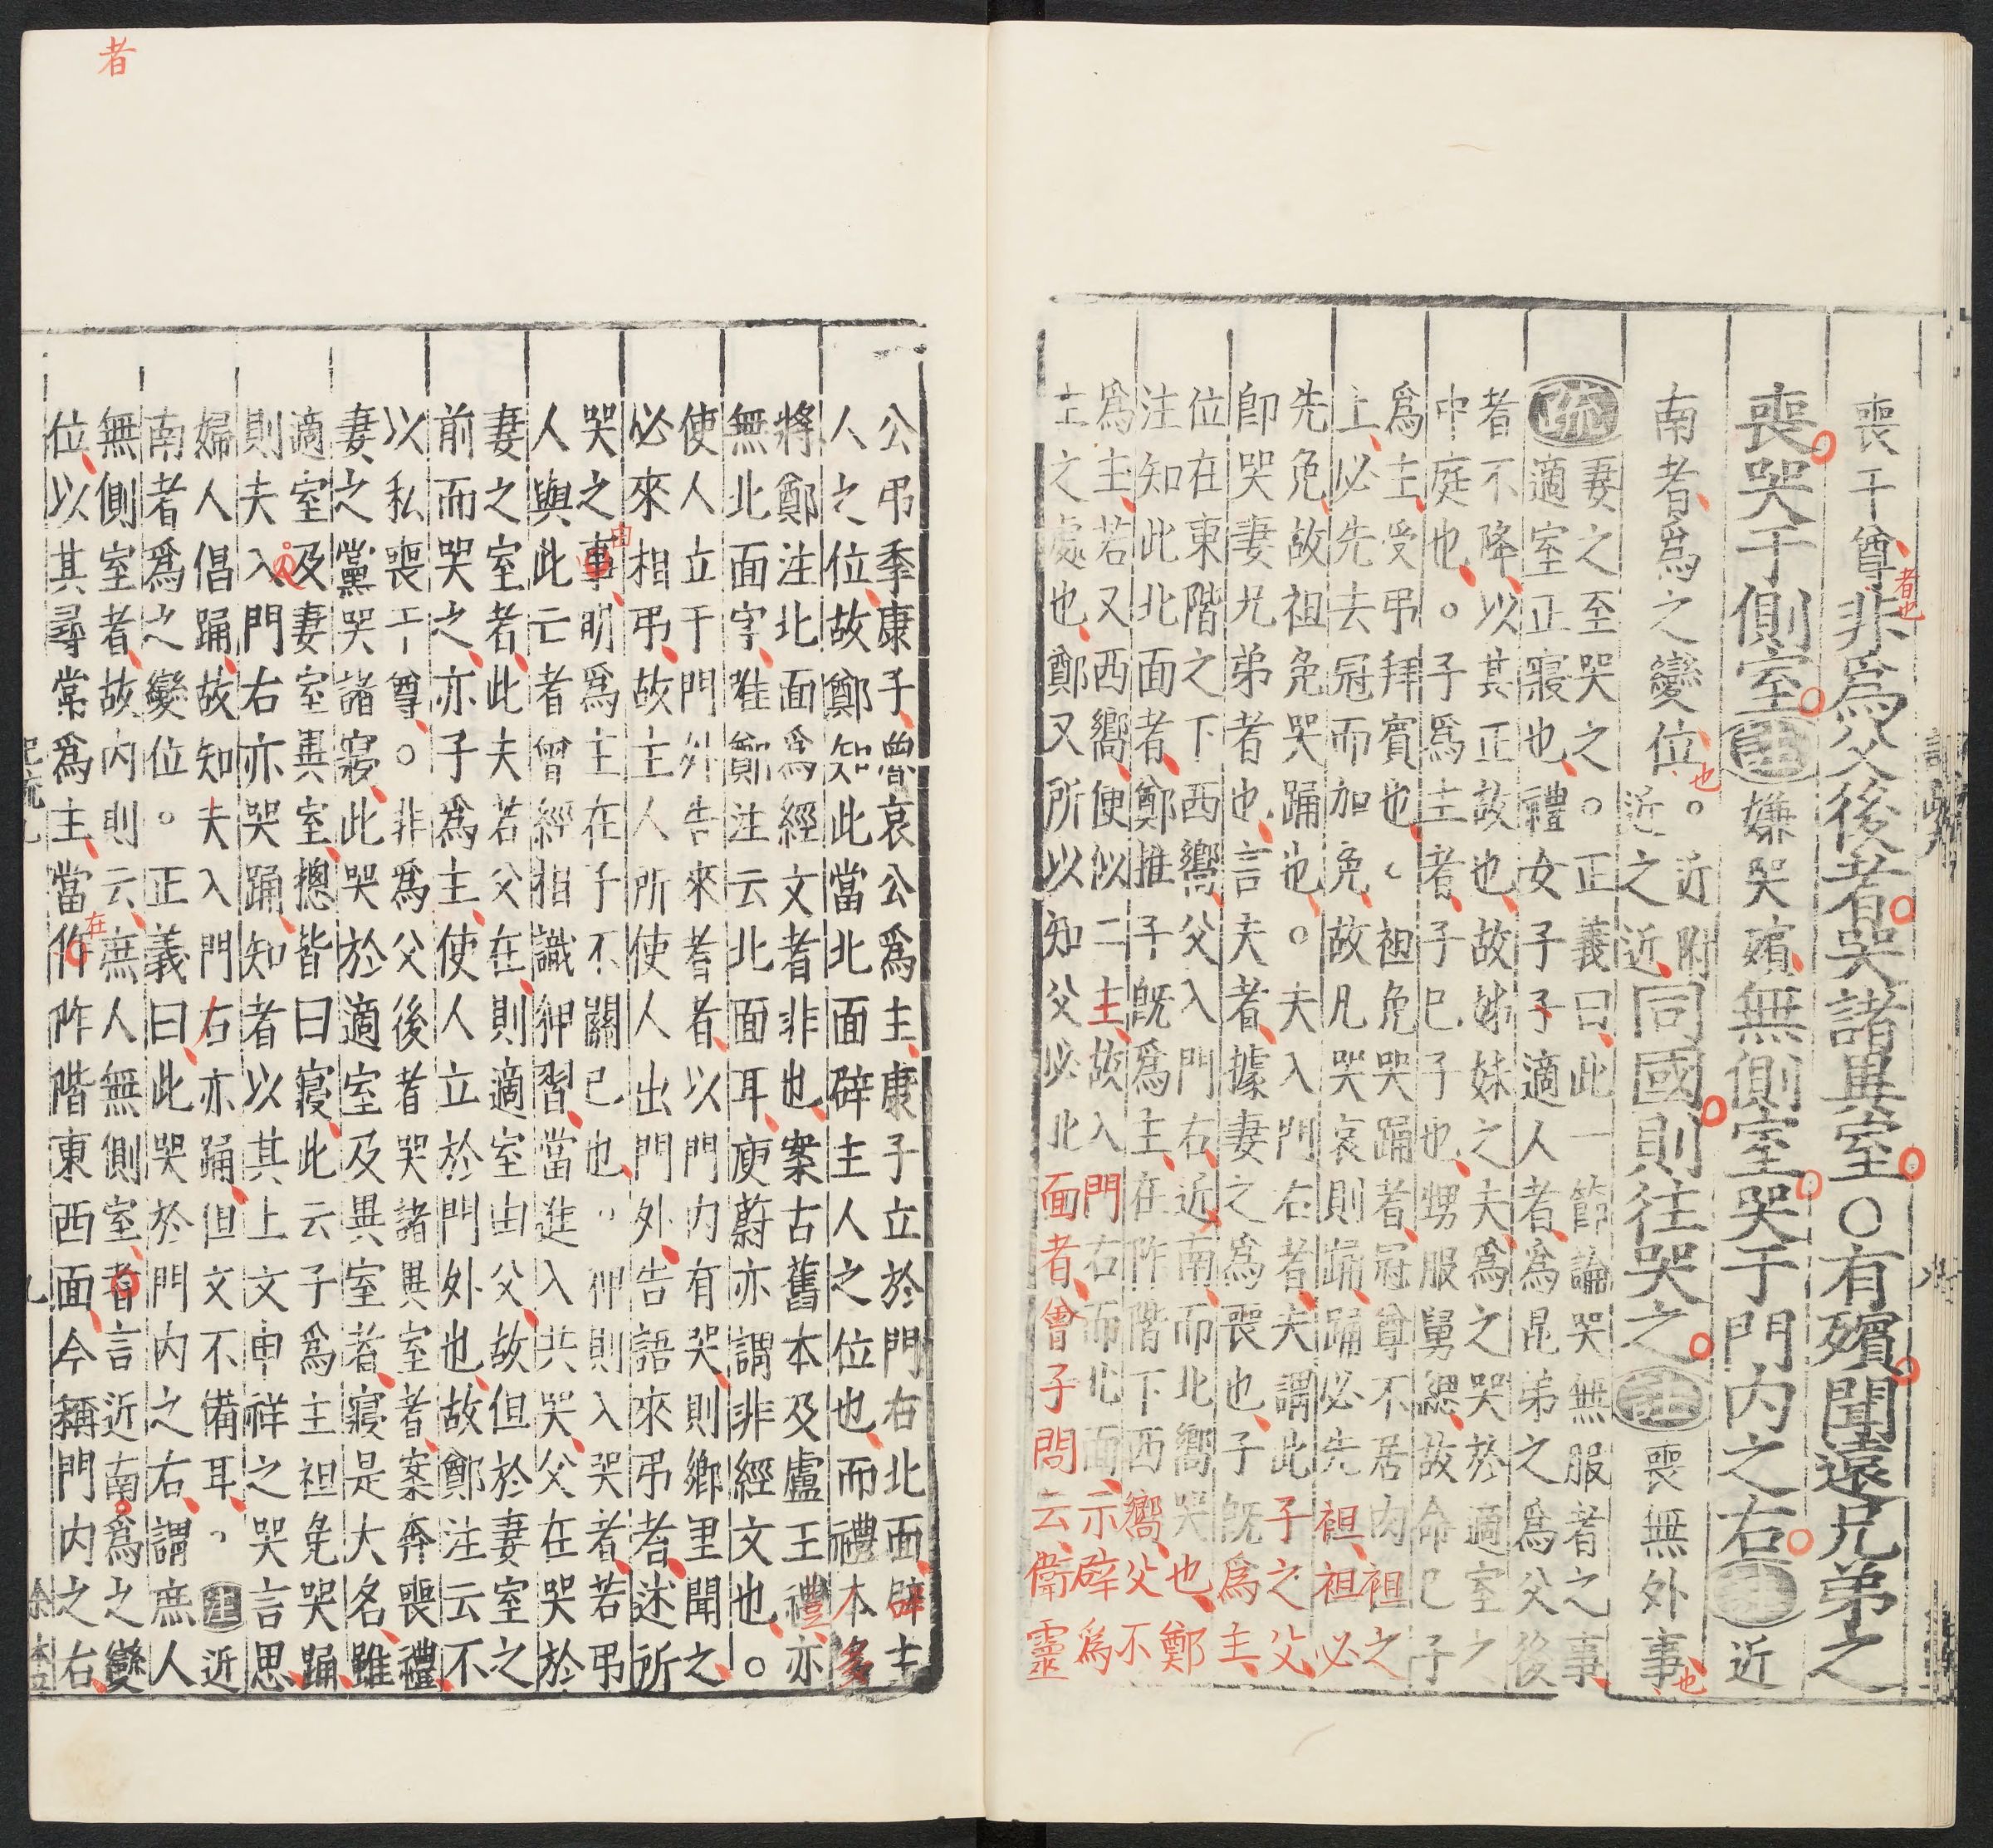 喪于尊者也非爲父後者哭諸異室○有殯聞遠兄弟之
喪哭于側室注嫌哭殯無側室哭于門内之右注近
南者爲之變位也。近附
近之近同國則往哭之注喪無外事也
疏妻之至哭之。正義曰此一節論哭無服者之事
適室正寢也禮女子子適人者爲昆弟之爲父後
者不降以其正故也故姊妹之夫爲之哭於適室之
中庭也。子爲主者子巳子也甥服舅緦故命巳子
爲主受弔拜賓也、袒免哭踊者冠尊不居肉袒之
上必先去冠而加免故凡哭哀則踊踊必先袒袒必
先免故袒免哭踊也。夫入門右者夫謂此子之父
卽哭妻兄弟者也言夫者據妻之爲喪也子旣爲主
位在東階之下西嚮父入門右近南而北嚮哭也鄭
注知此北面者鄭推子旣爲主在阼階下西嚮父不
爲主若又西嚮便似二主故入門右而北面示辟爲
主之處也鄭又所以知父必北面者曾子問云衛靈
者
公弔季康子魯哀公爲主康子立於門右北面辟主
人之位故鄭知此當北面辟主人之位也而禮本多
將鄭注北面爲經文者非也案古舊本及盧王禮亦
無北面字唯鄭注云北面耳庾蔚亦謂非經文也。
使人立于門外告來者者以門内有哭則鄉里聞之
必來相弔故主人所使人出門外告語來弔者述所
哭之事由明爲主在子不關己也、狎則入哭者若弔
人與此亡者曾經相識狎習當進入共哭父在哭於
妻之室者此夫若父在則適室由父故但於妻室之
前而哭之亦子爲主使人立於門外也故鄭注云不
以私喪干尊。非爲父後者哭諸異室者案奔喪禮
妻之黨哭諸寢此哭於適室及異室者寢是大名雖
適室及妻室異室摠皆曰寢此云子爲主袒免哭踊
則夫入門右亦哭踊知者以其上文申祥之哭言思
婦人倡踊故知夫入門右亦踊但文不備耳、注近
南者爲之變位。正義曰此哭於門内之右謂庶人
無側室者故内則云庶人無側室者言近南爲之變
位以其尋常爲主當作在阼階東西面今稱門内之右
記疏九
九